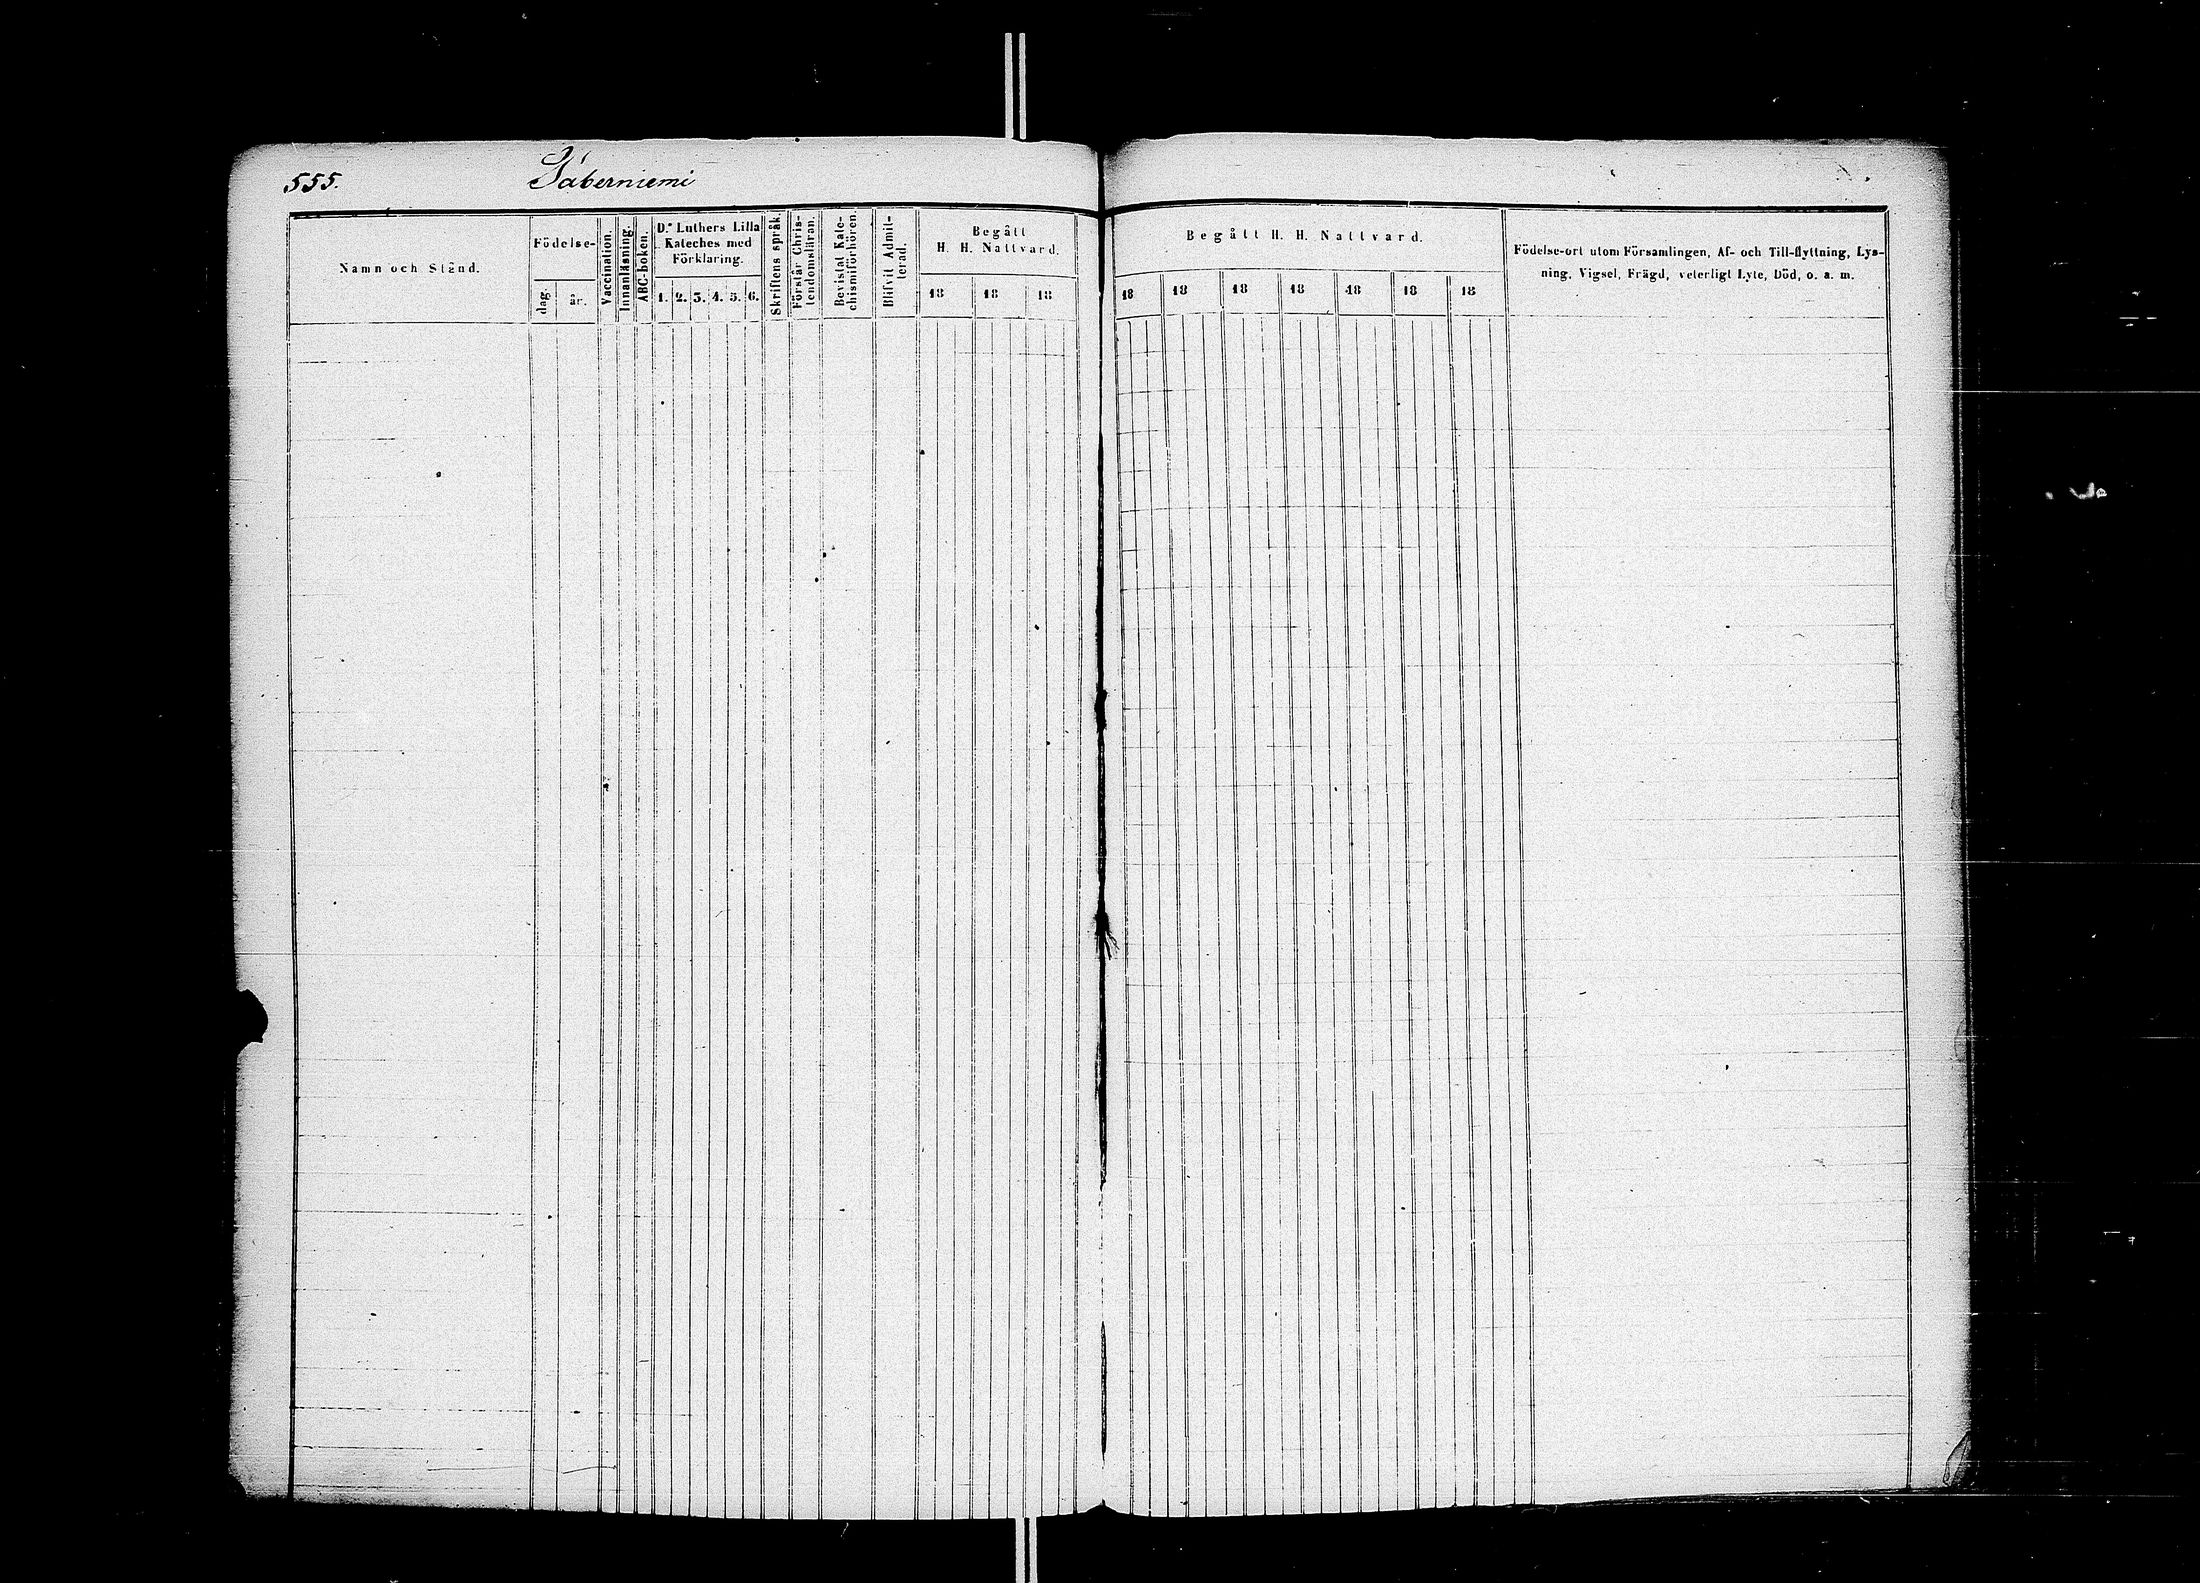 555.
Säberniemi
Namn och Stånd.
Födelse-
dag.
år.
Vaccination.
Innanläsning.
ABC-boken.
D:r Luthers Lilla
Kateches med
Förklaring.
1. 2. 3. 4. 5. 6.
Skriftens språk.
Förstår Chris-
tendomsläran.
Bevistat Kate-
chismiförhören.
Blifvit Admit-
terad.
Begått
H. H. Nattvard.
18 18 18
Begått H. H. Nattvard.
18 18 18 18 18 18 18
Födelse-ort utom Församlingen, Af- och Till-flyttning, Lys-
ning, Vigsel, Frägd, veterligt Lyte, Död, o. a. m.